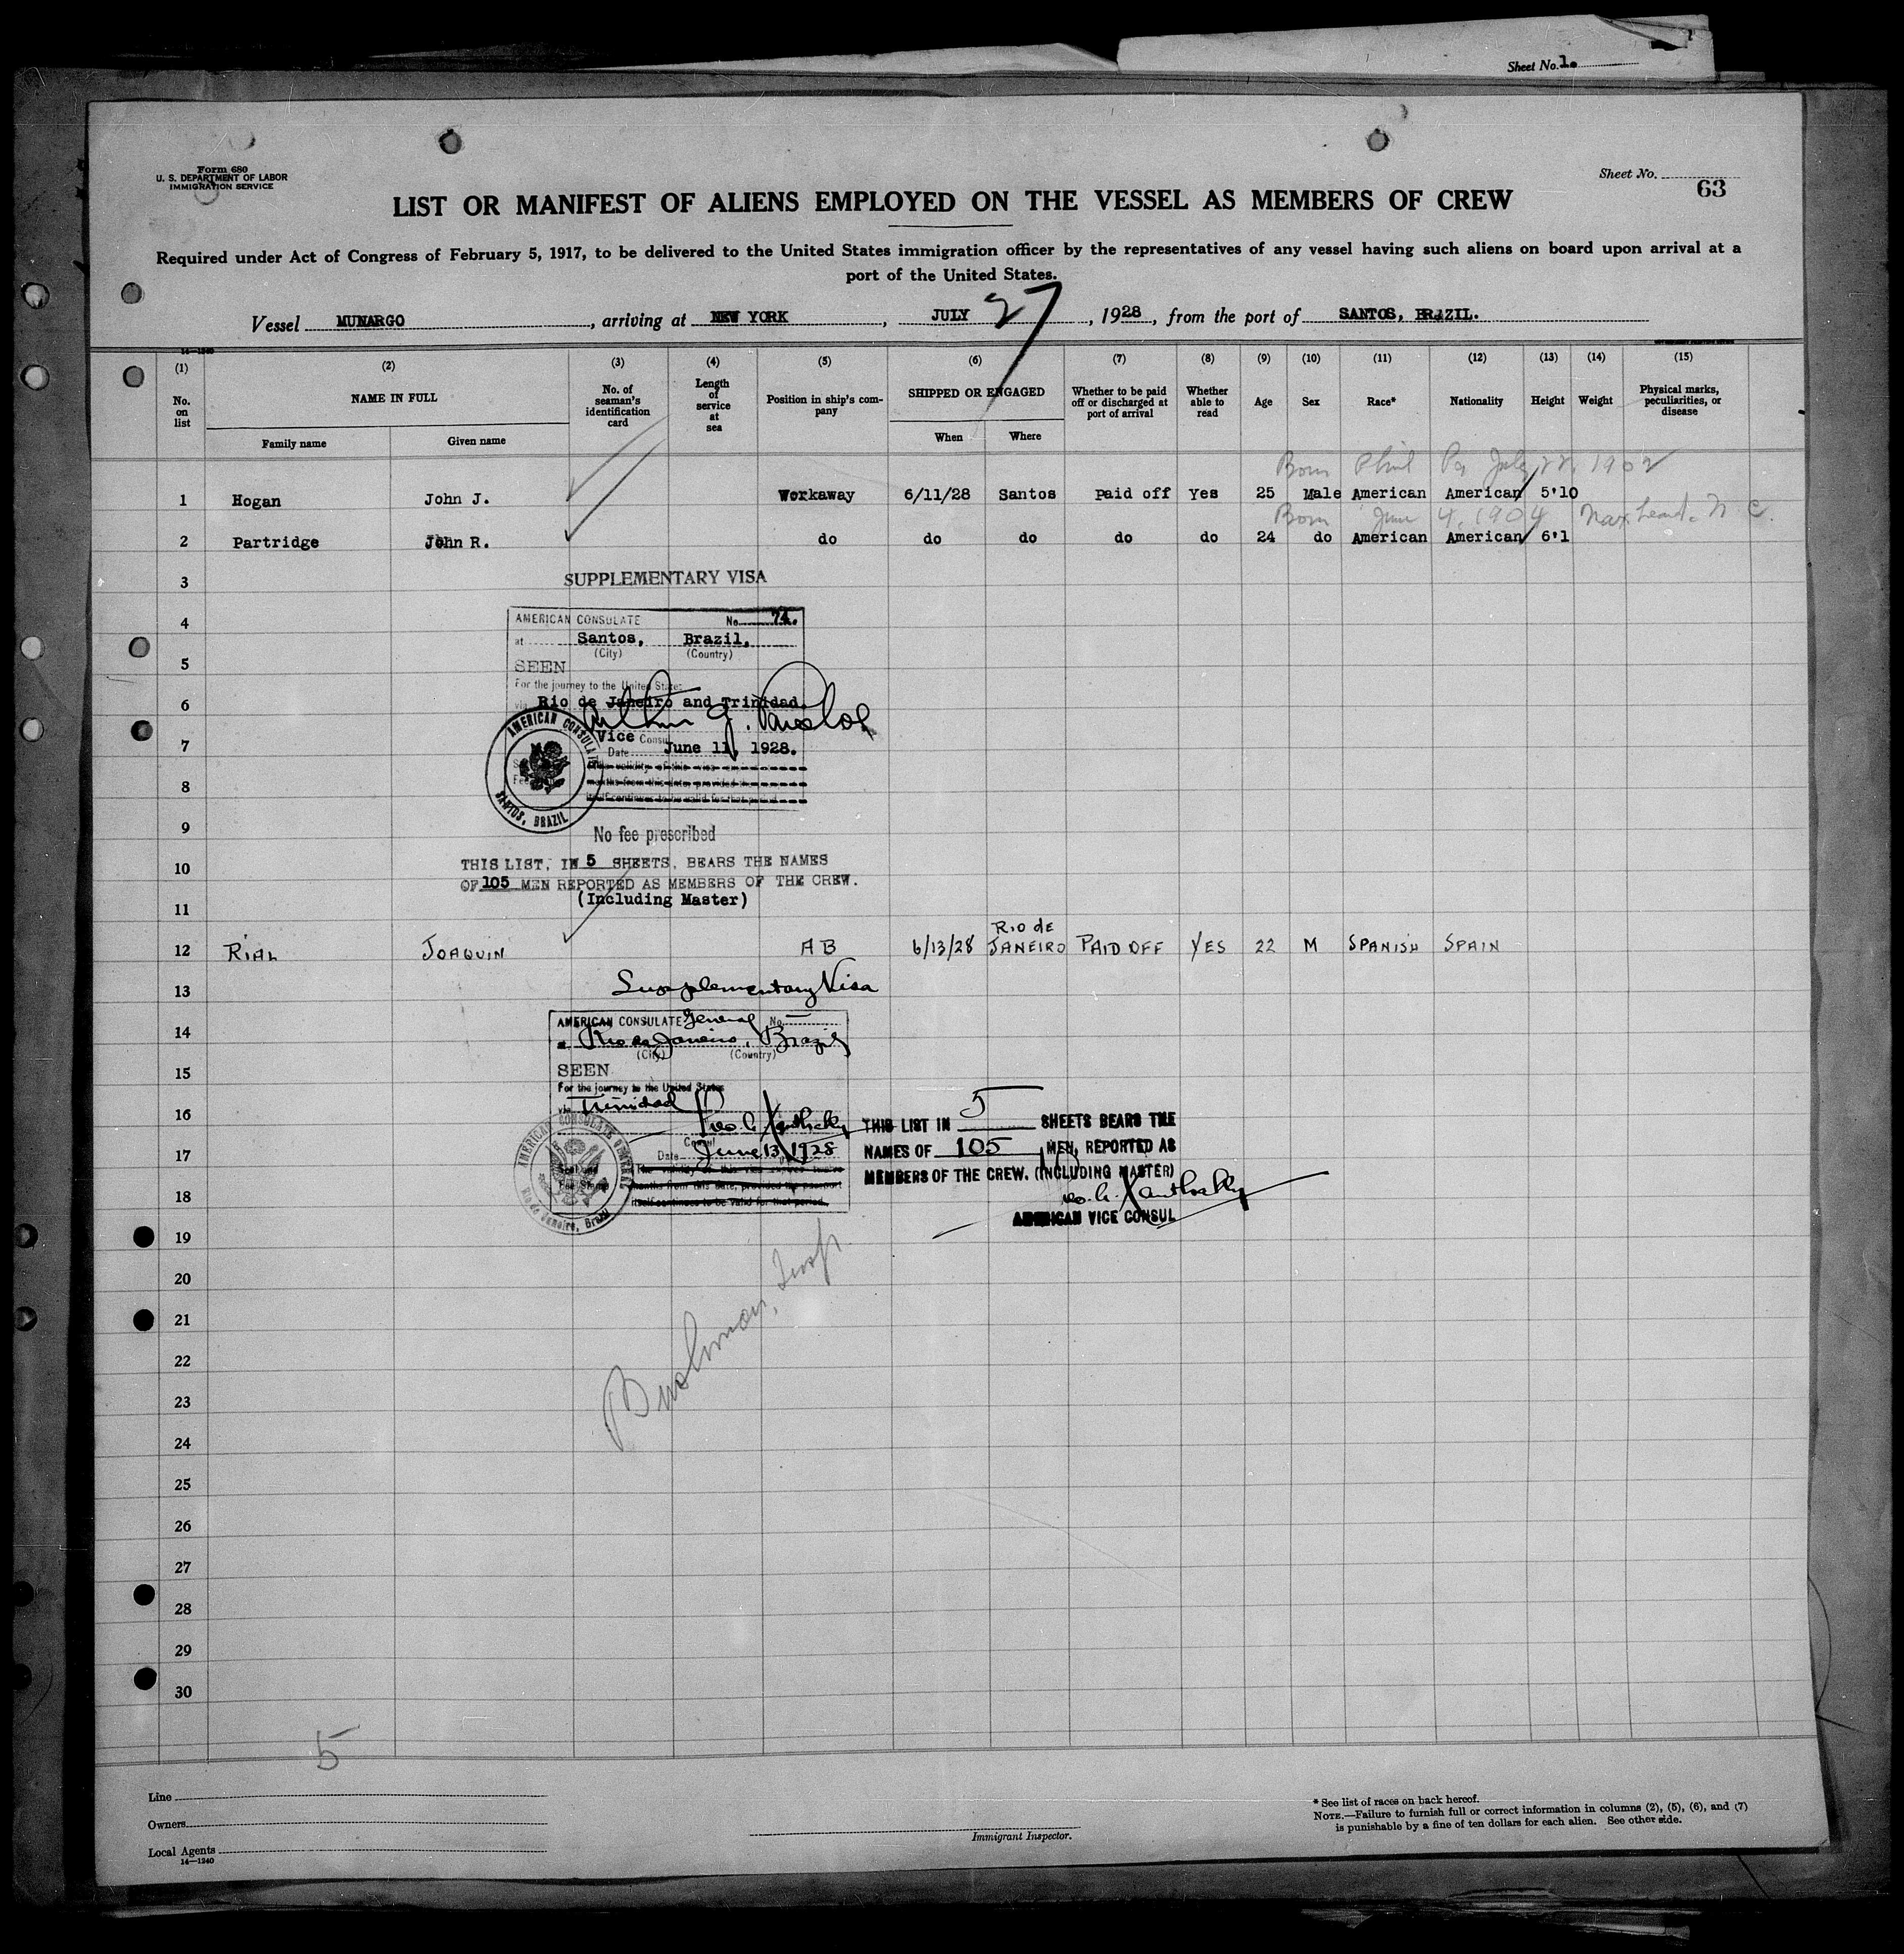 Sheet No. 1.
Form 680
U. S. DEPARTMENT OF LABOR
IMMIGRATION SERVICE
Sheet No.
63
LIST OR MANIFEST OF ALIENS EMPLOYED ON THE VESSEL AS MEMBERS OF CREW
Required under Act of Congress of February 5, 1917, to be delivered to the United States immigration officer by the representatives of any vessel having such aliens on board upon arrival at a
port of the United States.
Vessel MUNARGO, arriving at NEW YORK, JULY 27, 1928, from the port of SANTOS, BRAZIL.
14-1240
(1) (2) (3) (4) (5) (6) (7) (8) (9) (10) (11) (12) (13) (14) (15)
No. on list NAME IN FULL No. of seaman's identification card Length of service at sea Position in ship's company SHIPPED OR ENGAGED Whether to be paid off or discharged at port of arrival Whether able to read Age Sex Race* Nationality Height Weight Physical marks, peculiarities, or disease
Family name Given name When Where
Born Phil Pa July 22, 1902
1 Hogan John J. Workaway 6/11/28 Santos Paid off Yes 25 Male American American 5'10
Born June 4, 1904 N C.
2 Partridge John R. do do do do do 24 do American American 6'1
3 SUPPLEMENTARY VISA
4 AMERICAN CONSULATE No. 74.
at Santos, Brazil.
(City) (Country)
5 SEEN
For the journey to the United States
6 via Rio de Janeiro and Trinidad.
Arthur G.
7 Vice Consul
Date June 11, 1928.
AMERICAN CONSULATE
SANTOS, BRAZIL
8
9 No fee prescribed
10 THIS LIST, IN 5 SHEETS, BEARS THE NAMES
OF 105 MEN REPORTED AS MEMBERS OF THE CREW.
(Including Master)
11
12 RIAL JOAQUIN AB 6/13/28 RIO de JANEIRO PAID OFF YES 22 M SPANISH SPAIN
13 Supplementary Visa
14 AMERICAN CONSULATE General No.
Rio de Janeiro, Brazil
(City) (Country)
15 SEEN
For the journey to the United States
16 via Trinidad
THIS LIST IN 5 SHEETS BEARS THE
17 Consul
Date June 13, 1928
NAMES OF 105 MEN, REPORTED AS
MEMBERS OF THE CREW. (INCLUDING MASTER)
AMERICAN CONSULATE GENERAL
Rio de Janeiro, Brazil
Seal and
Fee Stamp
months from this date, provided the passport
itself continues to be valid for that period.
18
AMERICAN VICE CONSUL
19
20
21
22
23
24
25
26
27
28
29
30
Insp.
5
Line
Owners
Local Agents
14-1240
Immigrant Inspector.
* See list of races on back hereof.
NOTE.—Failure to furnish full or correct information in columns (2), (5), (6), and (7)
is punishable by a fine of ten dollars for each alien. See other side.